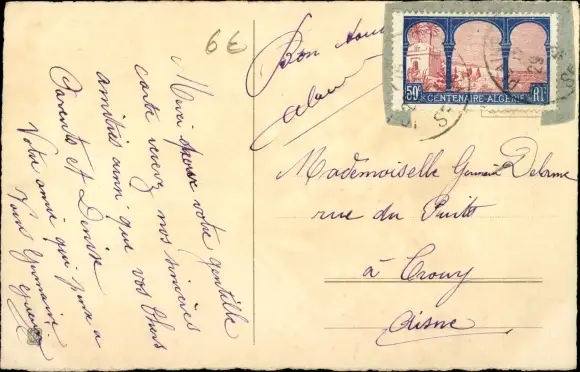 63
Bon
50c CENTENAIRE ALGERIE RF
Merci pour votre gentille
carte recevez nos sincères
amitiés ainsi que vos chers
Parents et Denise
Votre amie qui pense a
Vous Germaine
Mademoiselle Germaine Delorme
rue du Puits
à Crouy
Aisne